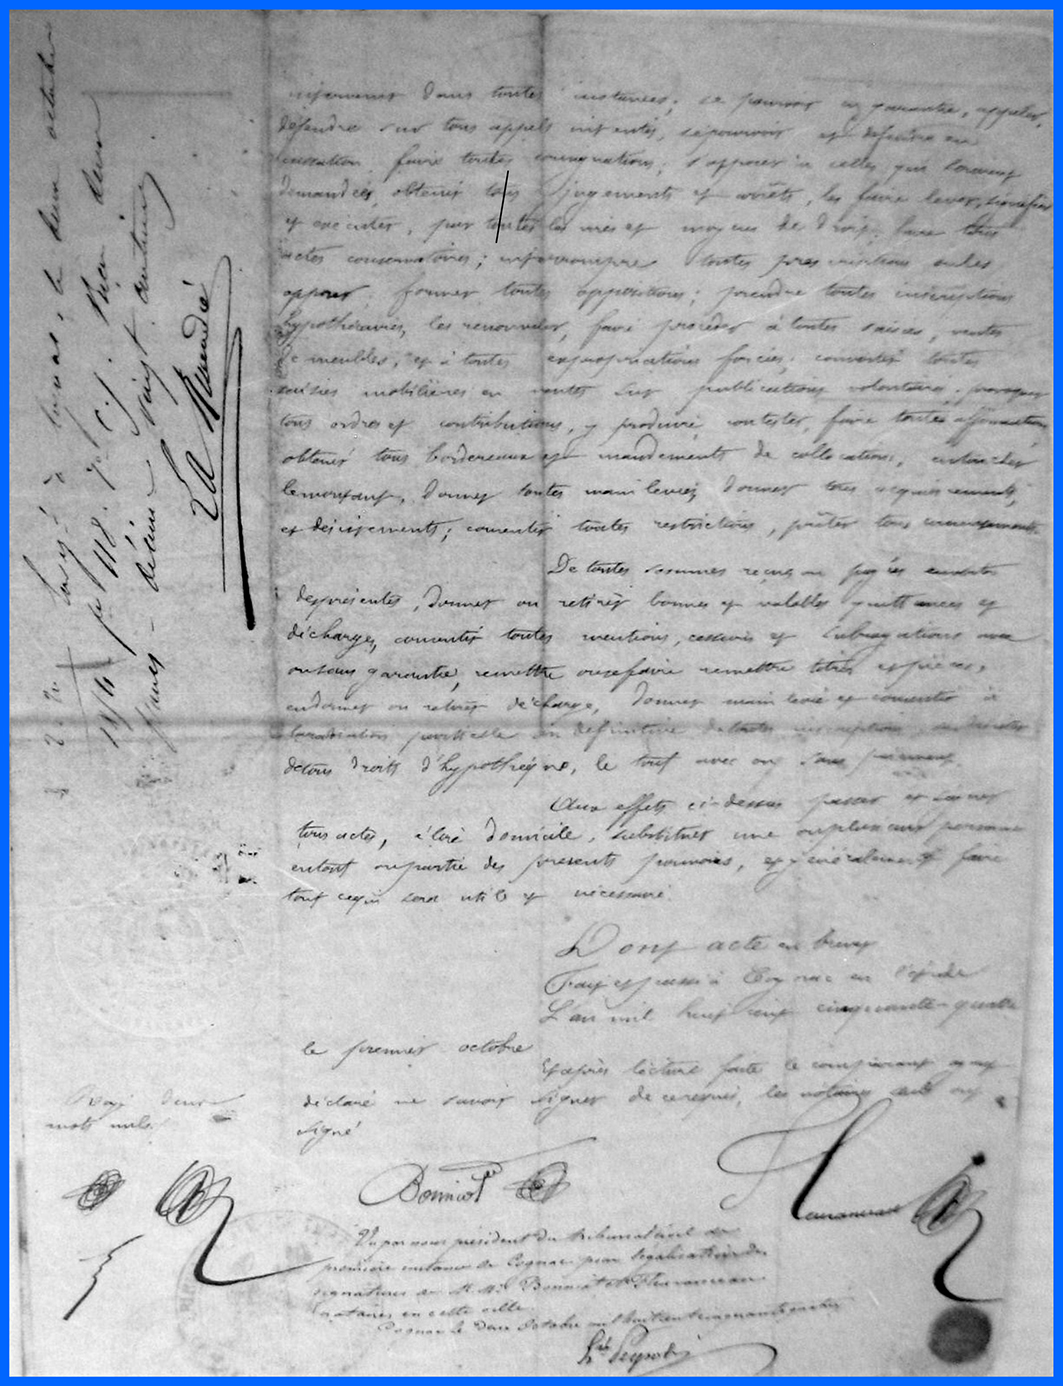 intervenir dans toutes instances, se pourvoir en garantie, appeler,
défendre sur tous appels intentés, se pourvoir et défendre en
cassation faire toutes, s'opposer à celles qui seraient
demandées, obtenir tous jugements et arrêts, les faire lever, signifier
et exécuter, par toutes les voies et moyens de droit, faire tous
actes conservatoires; interrompre toutes prescriptions ou les
opposer, former toutes oppositions; prendre toutes inscriptions
hypothécaires, les renouveler, faire procéder à toutes saisies, ventes
de meubles, et à toutes expropriations forcées; convertir toutes
saisies mobilières en ventes sur publications volontaires, provoquer
tous ordres et contributions, y produire, contester, faire toutes affirmations
obtenir tous bordereaux et mandements de collocations, en toucher
le montant, donner toutes main levées, donner tous acquiescements,
et désistements; consentir toutes restrictions, prêter tous
De toutes sommes reçues ou payées en vertu
des présentes, donner ou retirer bonnes et valables quittances et
décharges, consentir toutes mentions, cessions et subrogations avec
ou sans garantie, remettre ou se faire remettre titres et pièces,
en donner ou retirer décharge, donner main levée et consentir
la radiation partielle ou définitive de toutes inscriptions, se désister
de tous droits d'hypothèque, le tout avec ou sans paiement.
Aux effets ci-dessus passer et signer
tous actes, élire domicile, substituer une ou plusieurs personnes
en tout ou partie des présents pouvoirs, et généralement faire
tout ce qui sera utile et nécessaire.
Dont acte en brevet
Fait et passé à Cognac en l'étude
L'an mil huit cent cinquante-quatre
le premier octobre
Et après lecture faite le comparant ayant
déclaré ne savoir signer de ce requis, les notaires seuls ont
signé
Rayé deux
mots nuls.
Bonniot
Vu par nous président du tribunal civil de
première instance de Cognac pour légalisation des
signatures de M. Me Bonniot et
notaires en cette ville.
Cognac le deux Octobre mil huit cent cinquante quatre
à Cognac, le deux octobre
1854 fo 118. Vo C. 7. Reçu deux
francs décime vingt centimes